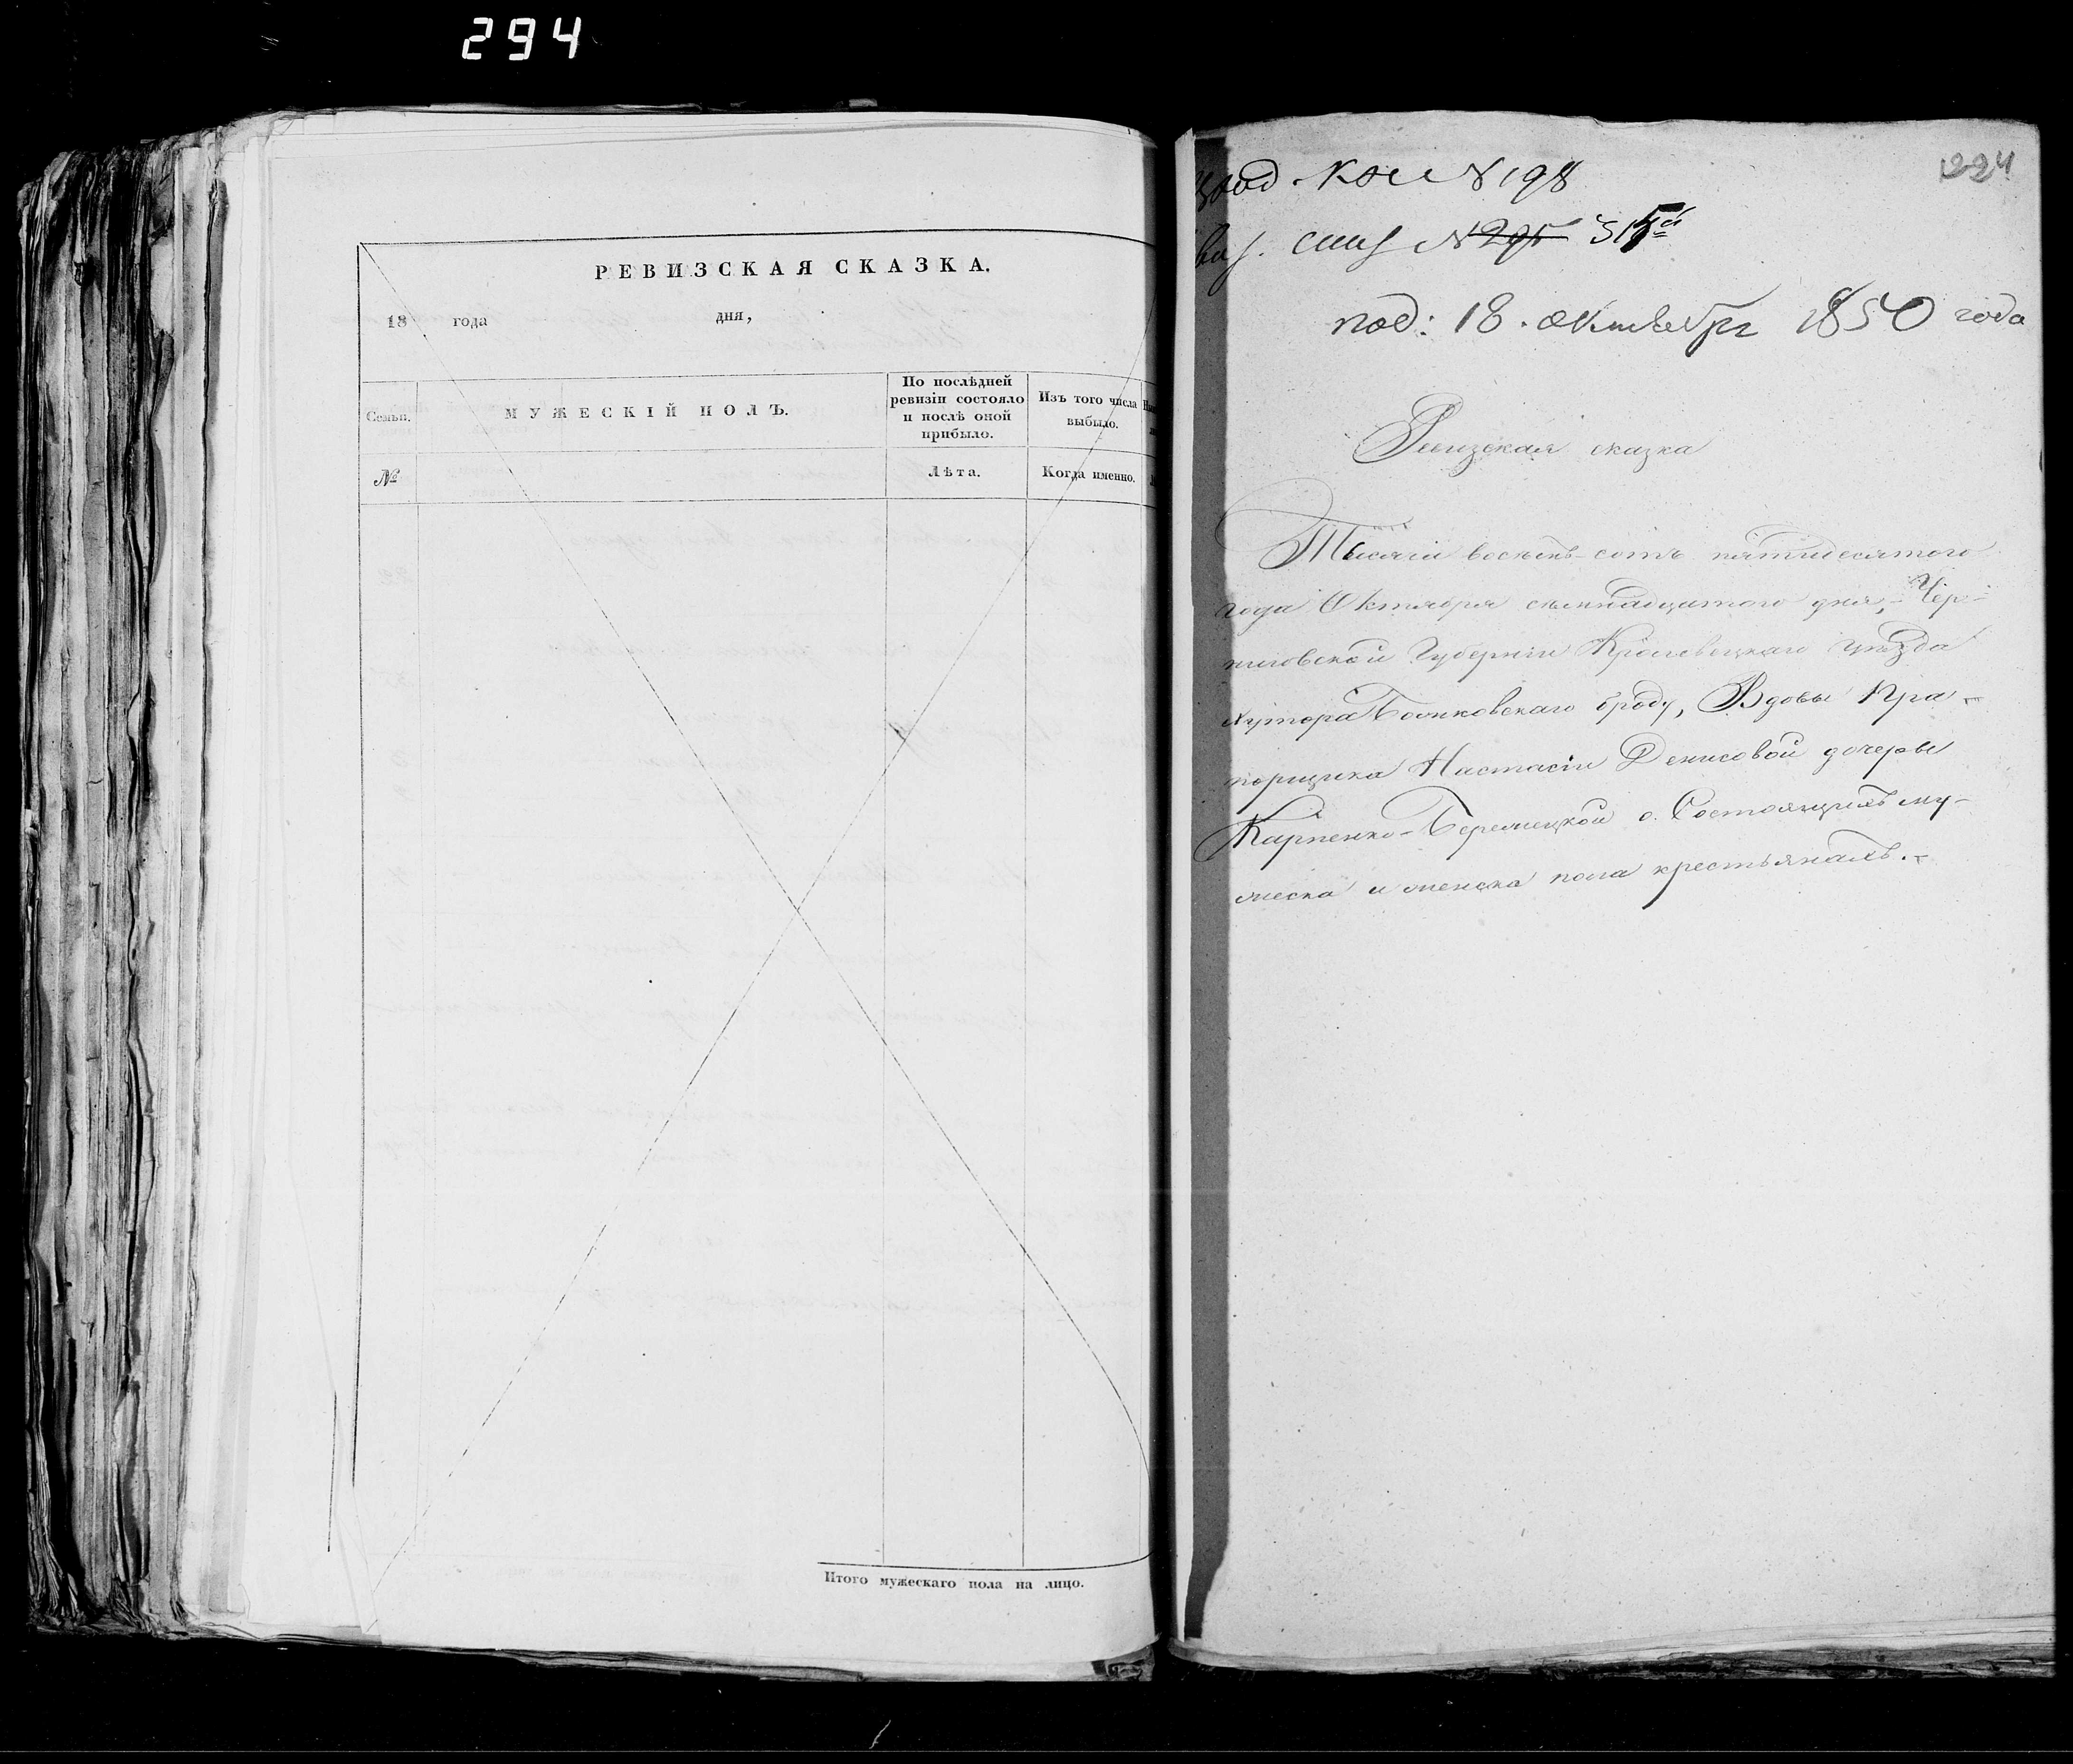 294
РЕВИЗСКАЯ СКАЗКА.
18 года дня,
Семьи.
МУЖЕСКІЙ ПОЛЪ.
По послѣдней
ревизіи состояло
и послѣ оной
прибыло.
Изъ того числа
выбыло.
№
Лѣта.
Когда именно.
Итого мужескаго пола на лицо.
224
№ 198
№ 295
под: 18. октября 1850 года
Ревизская сказка
Тысяча восемь сотъ пятидесятого
года Октября семнадцатого дня, Чер-
ниговской Губерніи Кролевецкаго уѣзда
хутора броду, Вдовы Пра-
порщика Настасіи Денисовой дочери
Карпенко- о Состоящихъ му-
жеска и женска пола крестьянахъ.